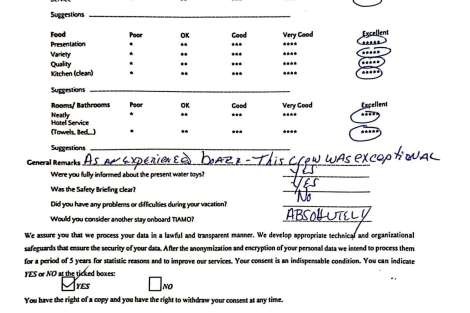 Suggestions
Food Poor OK Good Very Good Excellent
Presentation * ** *** **** *****
Variety * ** *** **** *****
Quality * ** *** **** *****
Kitchen (clean) * ** *** **** *****
Suggestions
Rooms/ Bathrooms Poor OK Good Very Good Excellent
Neatly * ** *** **** *****
Hotel Service
(Towels, Bed,...) * ** *** **** *****
Suggestions
General Remarks AS AN EXPERIENCED BOATER - THIS CREW WAS EXCEPTIONAL
Were you fully informed about the present water toys? YES
Was the Safety Briefing clear? YES
Did you have any problems or difficulties during your vacation? No
Would you consider another stay onboard TIAMO? ABSOLUTELY
We assure you that we process your data in a lawful and transparent manner. We develop appropriate technical and organizational
safeguards that ensure the security of your data. After the anonymization and encryption of your personal data we intend to process them
for a period of 5 years for statistic reasons and to improve our services. Your consent is an indispensable condition. You can indicate
YES or NO at the ticked boxes:
YES NO
You have the right of a copy and you have the right to withdraw your consent at any time.